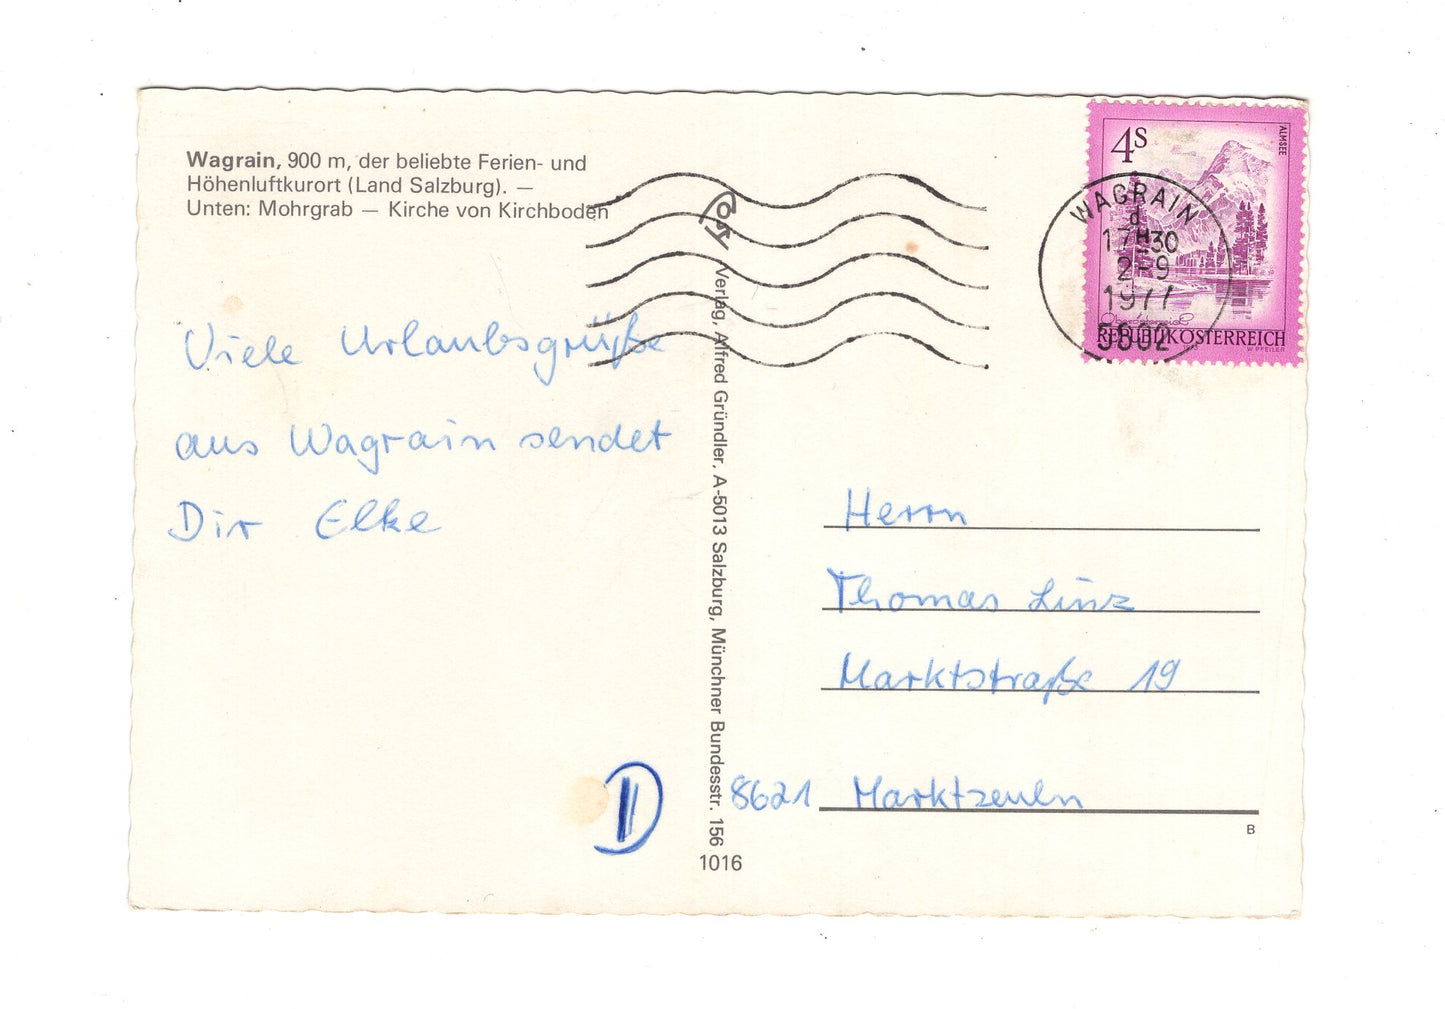 Wagrain, 900 m, der beliebte Ferien- und
Höhenluftkurort (Land Salzburg). —
Unten: Mohrgrab — Kirche von Kirchboden
Viele Urlaubsgrüße
aus Wagrain sendet
Dir Elke
Verlag, Alfred Gründler, A-5013 Salzburg, Münchner Bundesstr. 156
1016
D
4S
ALMSEE
REPUBLIK ÖSTERREICH
W. PFEILER
WAGRAIN
d
17H30
2-9
1977
5602
Herrn
Thomas Linz
Marktstraße 19
8621 Marktzeuln
B